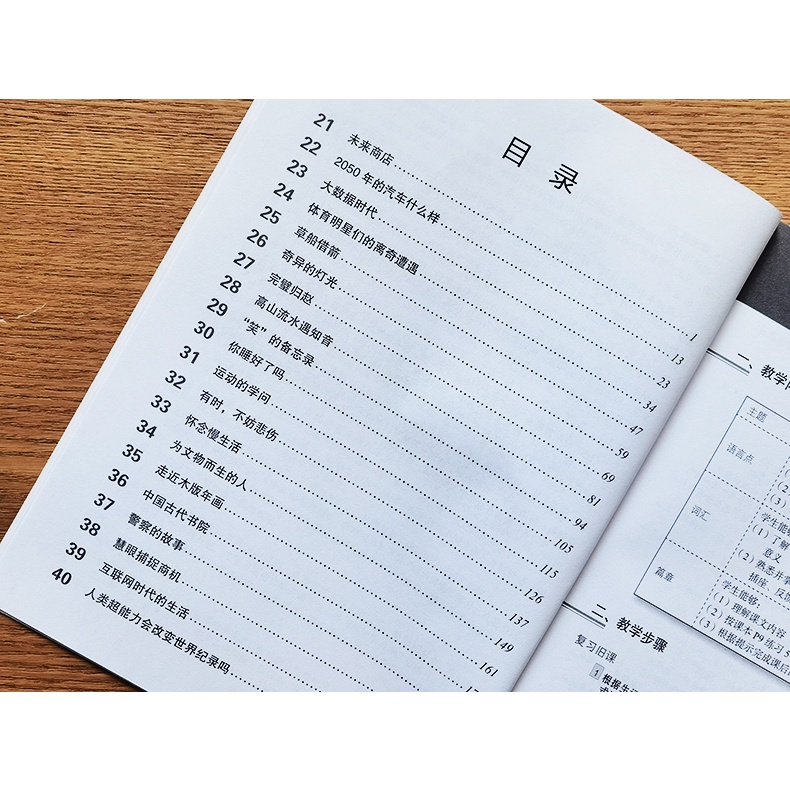 目 录
21 未来商店 1
22 2050年的汽车什么样 13
23 大数据时代 23
24 体育明星们的离奇遭遇 34
25 草船借箭 47
26 奇异的灯光 59
27 完璧归赵 69
28 高山流水遇知音 81
29 “笑”的备忘录 94
30 你睡好了吗 105
31 运动的学问 115
32 有时，不妨悲伤 126
33 怀念慢生活 137
34 为文物而生的人 149
35 走近木版年画 161
36 中国古代书院
37 警察的故事
38 慧眼捕捉商机
39 互联网时代的生活
40 人类超能力会改变世界纪录吗
一、教学
主题
语言点
(1)
(2)
(3)
词汇
学生能够
(1) 了解
意义
(2) 熟悉并
插座、反
篇章
学生能够：
(1) 理解课文内容
(2) 按课本P9练习5
(3) 根据提示完成课后
二、教学步骤
复习旧课
1 根据生